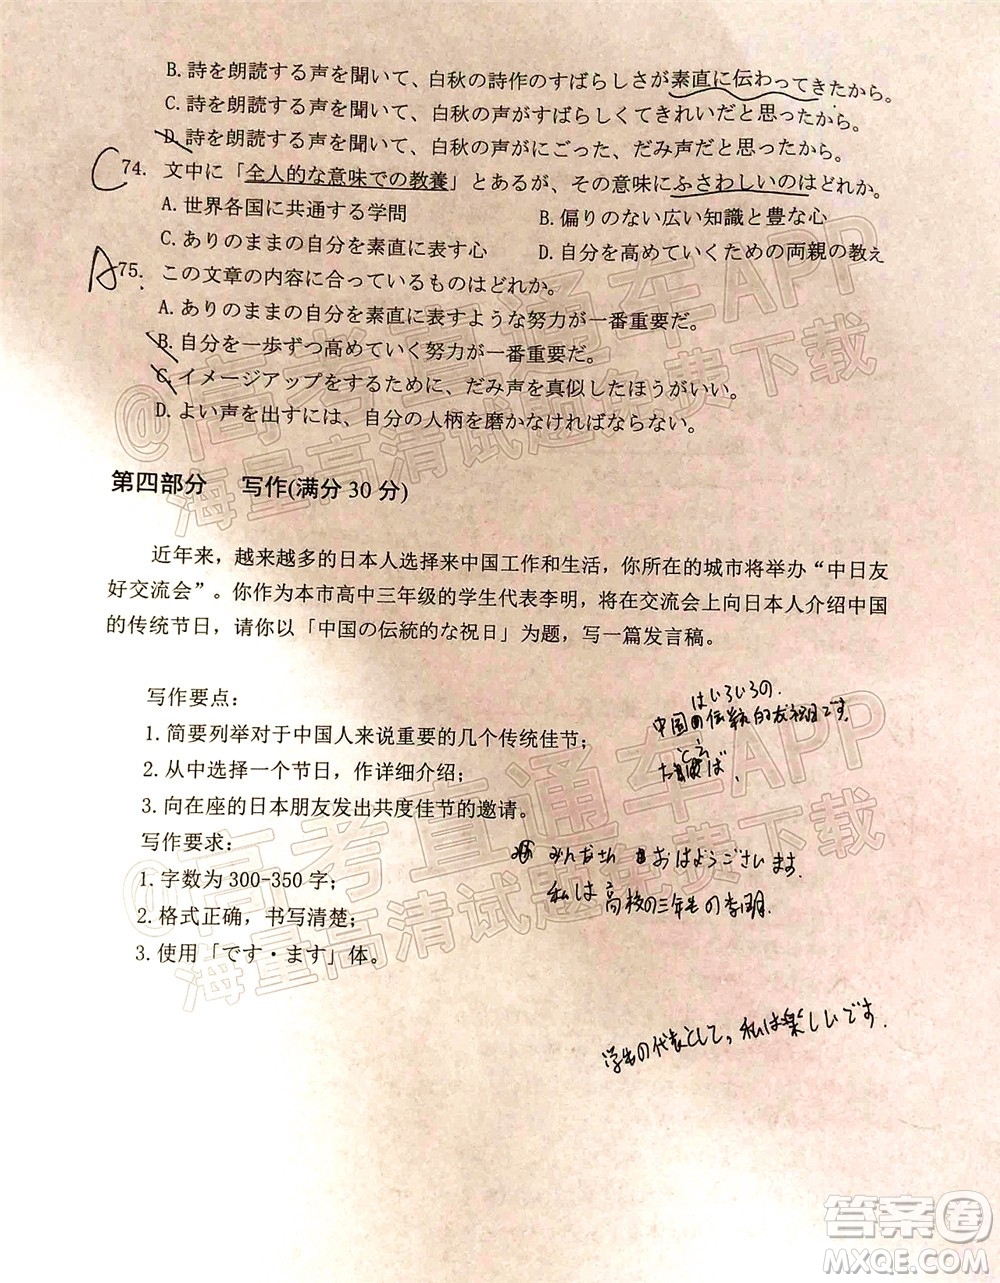 B. 詩を朗読する声を聞いて、白秋の詩作のすばらしさが素直に伝わってきたから。
C. 詩を朗読する声を聞いて、白秋の声がすばらしくてきれいだと思ったから。
D. 詩を朗読する声を聞いて、白秋の声がにごった、だみ声だと思ったから。
C 74. 文中に「全人的な意味での教養」とあるが、その意味にふさわしいのはどれか。
A. 世界各国に共通する学問 B. 偏りのない広い知識と豊な心
C. ありのままの自分を素直に表す心 D. 自分を高めていくための両親の教え
A 75. この文章の内容に合っているものはどれか。
A. ありのままの自分を素直に表すような努力が一番重要だ。
B. 自分を一歩ずつ高めていく努力が一番重要だ。
C. イメージアップをするために、だみ声を真似したほうがいい。
D. よい声を出すには、自分の人柄を磨かなければならない。
第四部分 写作(满分 30 分)
近年来，越来越多的日本人选择来中国工作和生活，你所在的城市将举办“中日友
好交流会”。你作为本市高中三年级的学生代表李明，将在交流会上向日本人介绍中国
的传统节日，请你以「中国の伝統的な祝日」为题，写一篇发言稿。
写作要点：
1. 简要列举对于中国人来说重要的几个传统佳节；
2. 从中选择一个节日，作详细介绍；
3. 向在座的日本朋友发出共度佳节的邀请。
写作要求：
1. 字数为 300-350 字；
2. 格式正确，书写清楚；
3. 使用「です・ます」体。
はいろいろの
中国の伝統的な祝日です
みんなさん おはようございます
私は高校の三年生の李明
学生の代表として，私は楽しいです.
@高考直通车APP
海量高清试题免费下载
@高考直通车APP
海量高清试题免费下载
答案圈
MXQE.COM